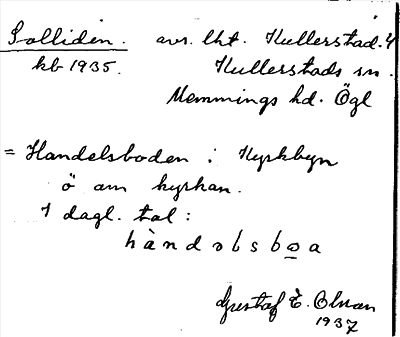 Solliden. avs. lht. Kullerstad. 4
kb 1935. Kullerstads sn.
Memmings hd. Ögl
= Handelsboden i Kyrkbyn
ö om kyrkan.
I dagl. tal:
hàndəlsboa
Gustaf E.
1937